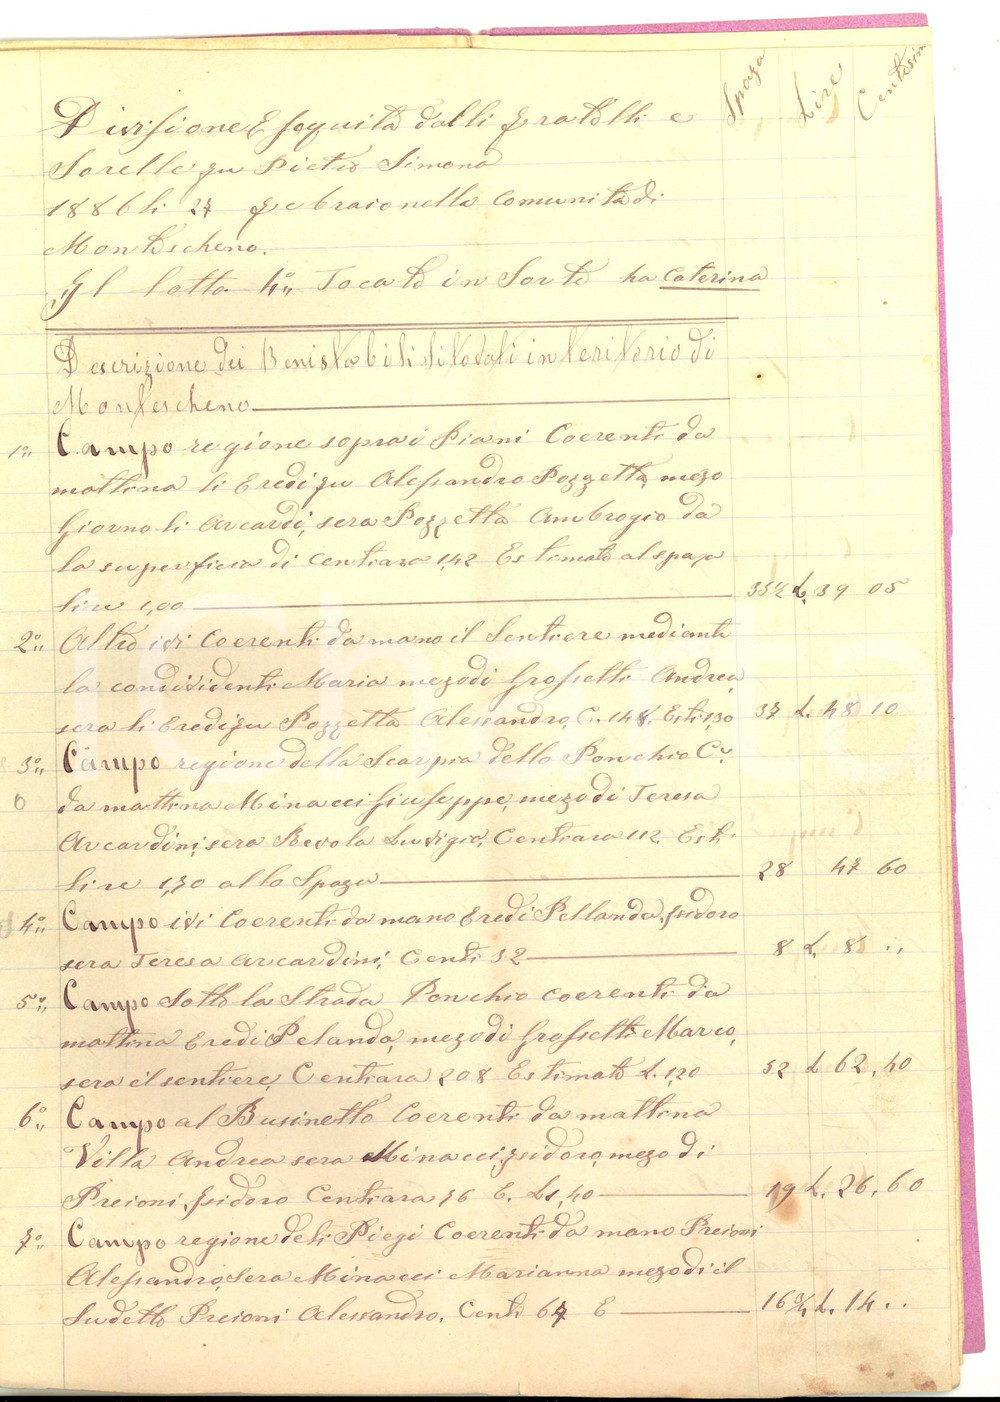 Spaza Lire Centesim
Divisione Esequita dalli Fratelli e
Sorelle fu Pietro Simona
1886 li 27 Febraio nella Comunita di
Montescheno.
Il lotto 4° Tocato in Sorte ha Caterina
Descrizione dei Beni Stabili Sitovati in Teritorio di
Montescheno
1° Campo regione sopra i Piani Coerenti da
mattina li Eredi fu Alessandro Pozzetta, mezo
Giorno li Arcardi, sera Pozzetta Ambrogio da
la superficia di Centiara 142 Estimato al spaza
lire 1,00 35½ L. 39 05
2° Altro ivi Coerenti da mano il Sentiere mediante
la condividenti Maria mezodi Grossetti Andrea,
sera li Eredi fu Pozzetta Alessandro, C. 148. Esti 1,30 37 L. 48 10
3° Campo regione della Scarpia dello Ponchio C.
0 da mattina Minacci Giuseppe, mezodi Teresa
Arcardini, sera Bevola Luvigia, Centiara 112 Esti.
lire 1,70 allo Spaza 28 47 60
4° Campo ivi Coerenti da mano Eredi Pellanda, Isidoro
sera Teresa Arcardini, Centi 32 8 L. 8 ..
5° Campo Sotto la Strada Ponchio coerenti da
mattina Eredi Pelanda, mezodi Grossetti Marco,
sera il sentiere, Centiara 208 Estimato L. 1,20 52 L 62,40
6° Campo al Businetto Coerenti da mattina
Villa Andrea sera Minacci, Isidoro, mezo di
Preioni, Isidoro Centiara 76 E. L. 1,40 19 L. 26,60
7° Campo regione deli Piegi Coerenti da mano Preioni
Alessandro, Sera Minacci Marianna mezodi il
Sudetto Preioni Alessandro. Centi 67 E 16¾ L. 14 ..